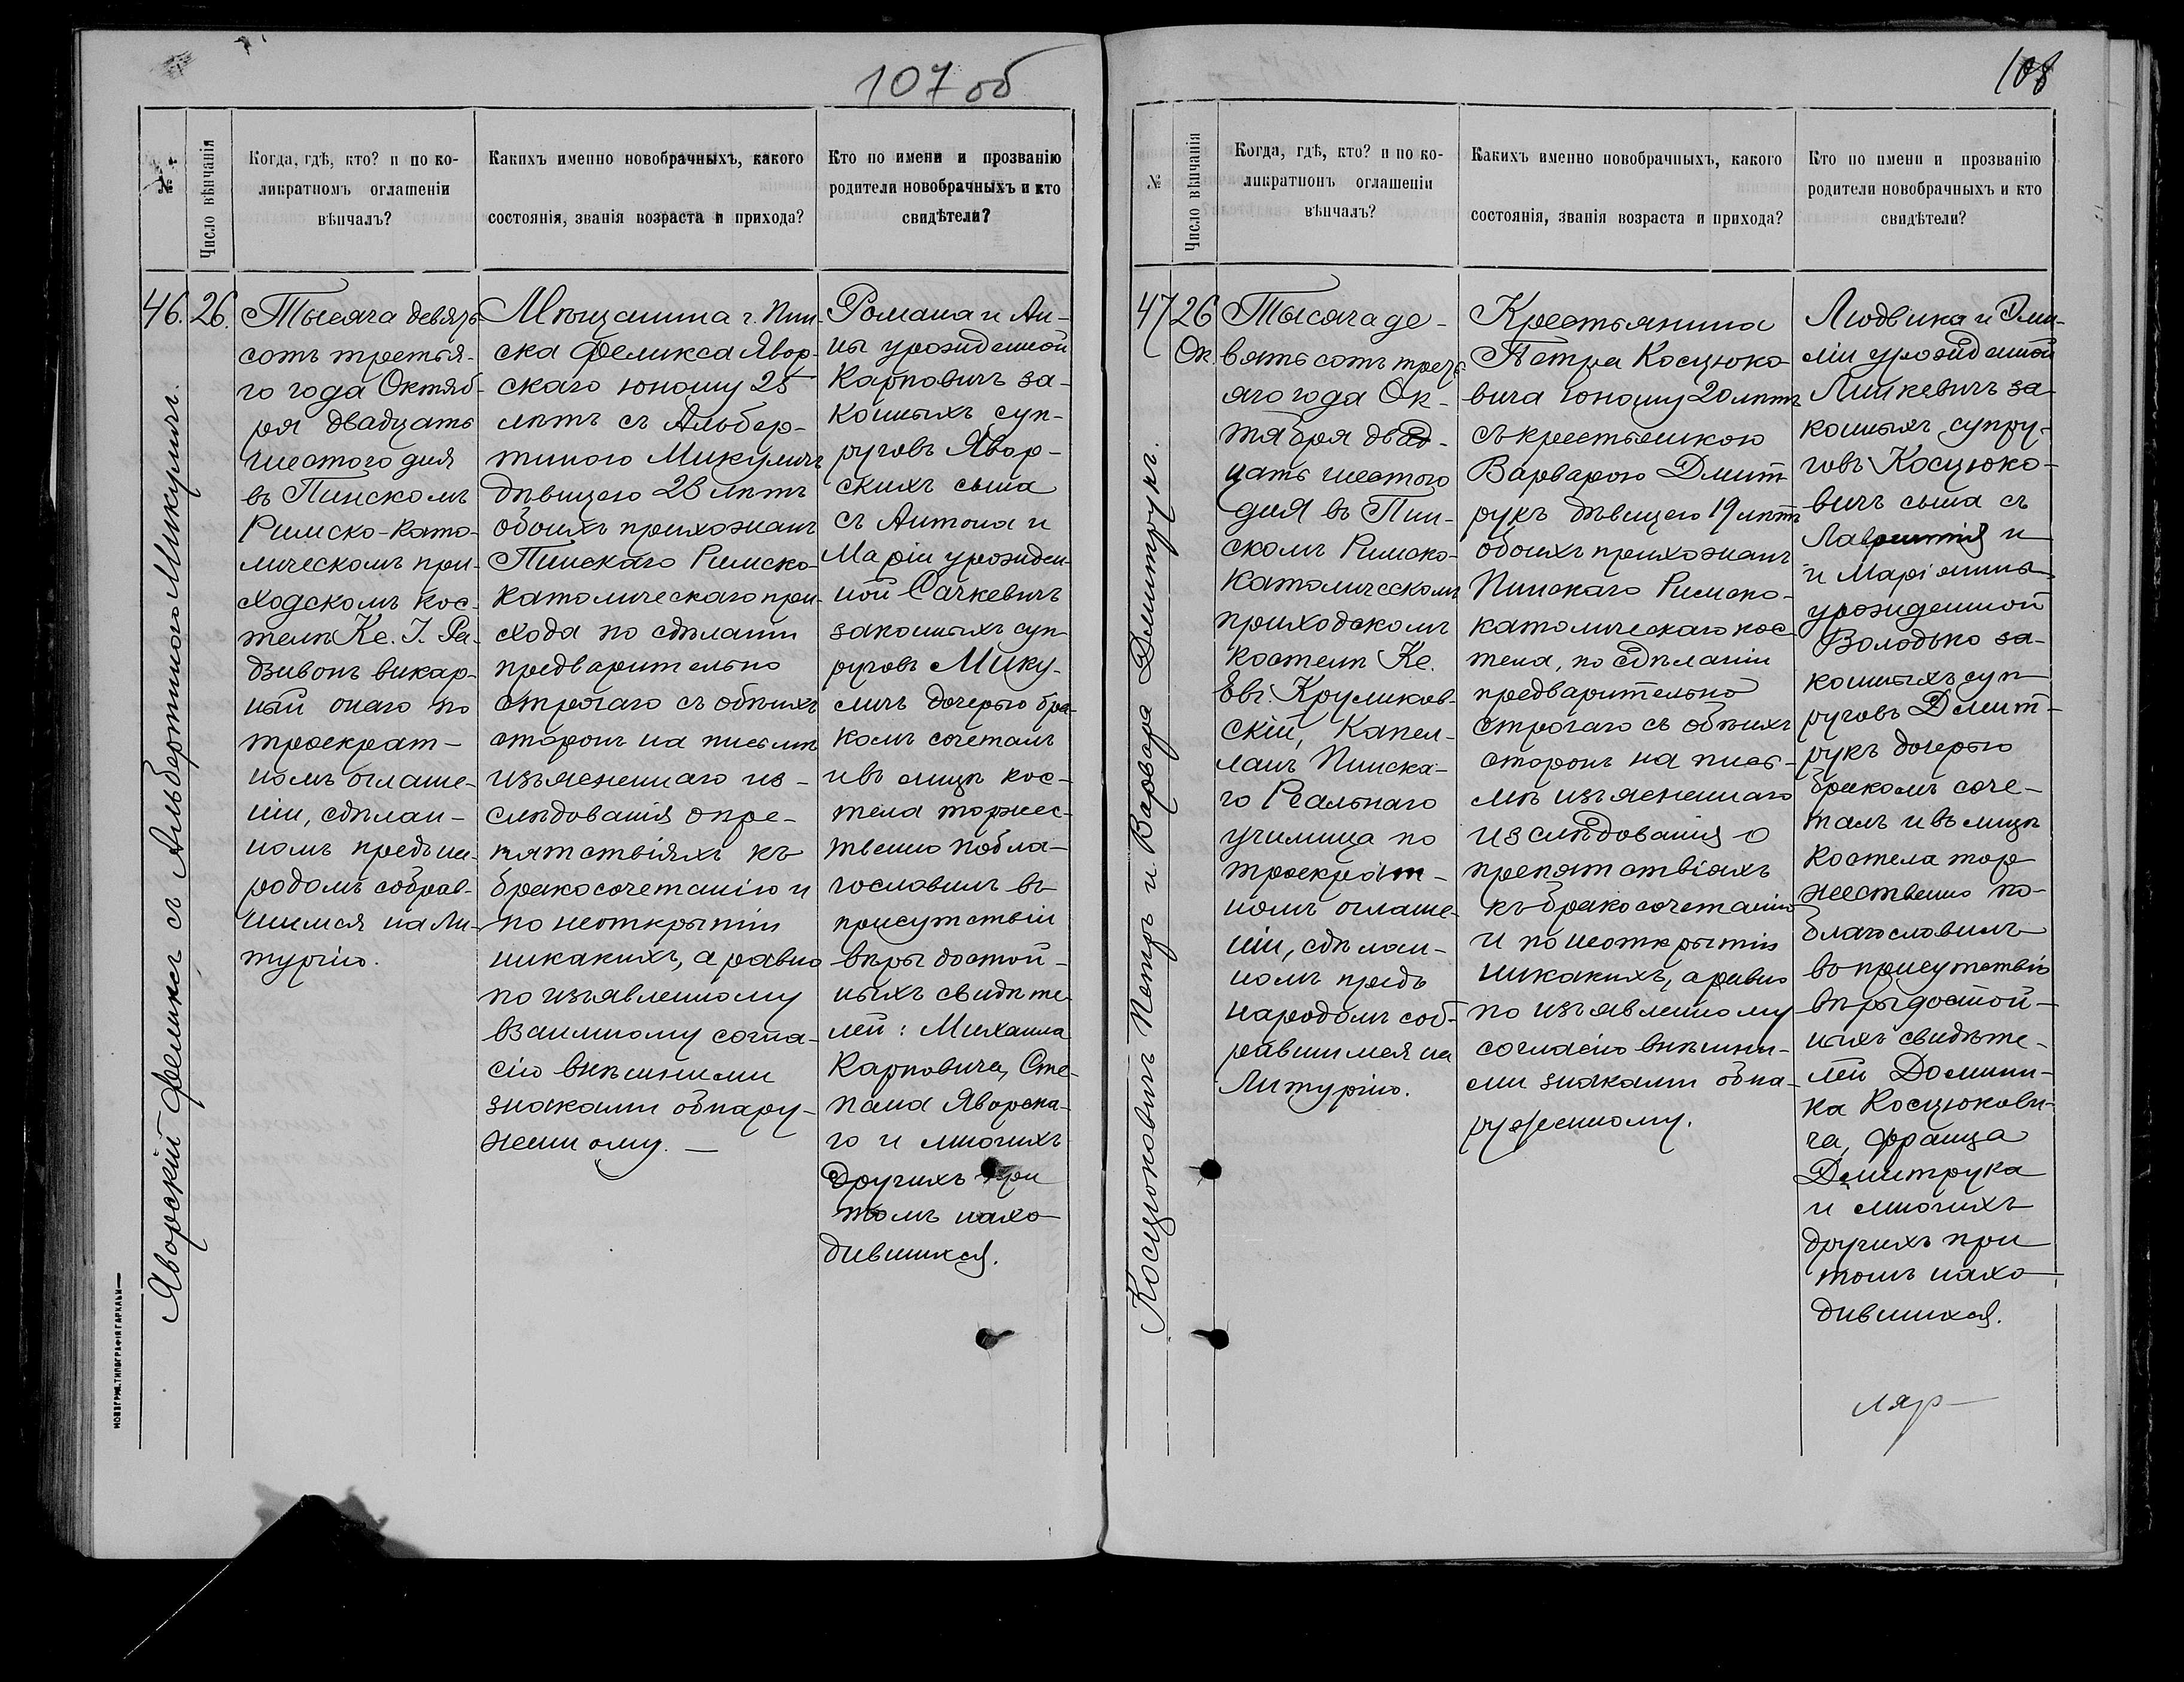 107 об
№
Число вѣнчанія
Когда, гдѣ, кто? и по ко-
ликратномъ оглашеніи
вѣнчалъ?
Какихъ именно новобрачныхъ, какого
состоянія, званія возраста и прихода?
Кто по имени и прозванію
родители новобрачныхъ и кто
свидѣтели?
Яворскій Феликсъ съ Альбертиною Микуличъ.
46.
26.
Тысяча девять
сотъ третья-
го года Октяб-
ря двадцать
шестого дня
въ Пинскомъ
Римско-Като-
лическомъ при-
ходскомъ кос-
телѣ Кс. І. Ра-
дзивонъ викар-
ный онаго по
троекрат-
номъ оглаше-
ніи, сдѣлан-
номъ предъ на-
родомъ собрав-
шимся на Ли-
тургію.
Мѣщанина г. Пин-
ска Феликса Явор-
скаго юношу 25
лѣтъ съ Альбер-
тиною Микуличъ
дѣвицею 23 лѣтъ
обоихъ прихожанъ
Пинскаго Римско-
католическаго при-
хода по сдѣланіи
предварительно
строгаго съ обѣихъ
сторонъ на письмѣ
изъясненнаго из-
слѣдованія о пре-
пятствіяхъ къ
бракосочетанію и
по неоткрытіи
никакихъ, а равно
по изъявленному
взаимному согла-
сію внѣшними
знаками обнару-
женному. —
Романа и Ан-
ны урожденной
Карповичъ за-
конныхъ суп-
руговъ Явор-
скихъ сына
съ Антона и
Маріи урожден-
ной Сачкевичъ
законныхъ суп-
руговъ Мику-
личъ дочерью бра-
комъ сочеталъ
и въ лицѣ кос-
тела торжес-
твенно побла-
гословилъ въ
присутствіи
вѣры достой-
ныхъ свидѣте-
лей: Михаила
Карповича, Сте-
пана Яворска-
го и многихъ
другихъ при
томъ нахо-
дившихся.
НОВОГРУД. ТИПОГРАФІЯ ГАРКАВИ
108
№
Число вѣнчанія
Когда, гдѣ, кто? и по ко-
ликратномъ оглашеніи
вѣнчалъ?
Какихъ именно новобрачныхъ, какого
состоянія, званія возраста и прихода?
Кто по имени и прозванію
родители новобрачныхъ и кто
свидѣтели?
Косцюковичъ Петръ и Варвара Дмитрукъ.
47
26
Ок.
Тысяча де-
вятьсотъ треть
яго года Ок-
тября двад-
цать шестого
дня въ Пин-
скомъ Римско-
Католическомъ
приходскомъ
костелѣ Кс.
Евг. Круликов-
скій, Капел-
ланъ Пинска-
го Реальнаго
училища по
троекрат-
номъ оглаше-
ніи, сдѣлан-
номъ предъ
народомъ соб-
равшимся на
Литургію.
Крестьянина
Петра Косцюко
вича юношу 20 лѣтъ
съ крестьянкою
Варварою Дмит
рукъ дѣвицею 19 лѣтъ
обоихъ прихожанъ
Пинскаго Римско-
католическаго кос
тела, по сдѣланіи
предварительно
строгаго съ обѣихъ
сторонъ на пись-
мѣ изъясненнаго
изслѣдованія о
препятствіяхъ
къ бракосочетанію
и по неоткрытіи
никакихъ, а равно
по изъявленному
согласію внѣшни-
ми знаками обна-
руженному.
Людвика и Эми-
ліи урожденной
Линкевичъ за-
конныхъ супру-
говъ Косцюко-
вичъ сына съ
Лаврентія и
и Маріанны
урожденной
Володько за-
конныхъ суп-
руговъ Дмит-
рукъ дочерью
бракомъ соче-
талъ и въ лицѣ
костела тор
жественно по-
благословилъ
въ присутствіи
вѣры достой-
ныхъ свидѣте-
лей Домини-
ка Косцюкови-
ча, Франца
Дмитрука
и многихъ
другихъ при
томъ нахо-
дившихся.